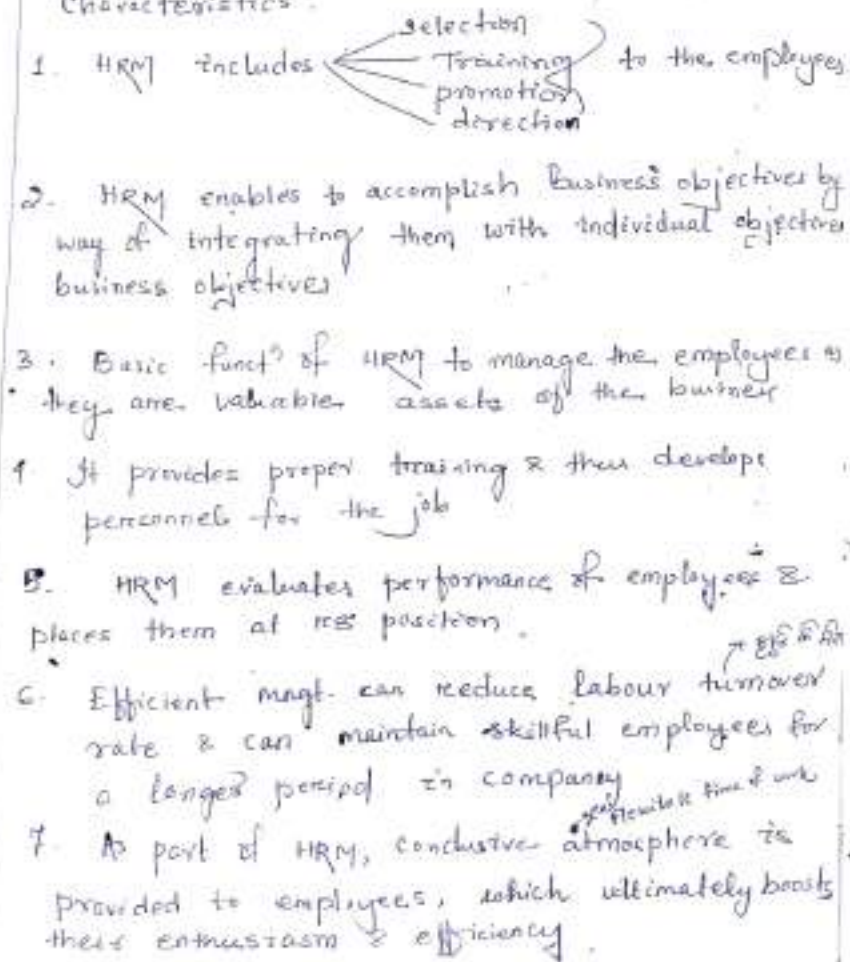 Characteristics.
selection
1. HRM includes Training to the employees
promotion
direction
2. HRM enables to accomplish Business objectives by
way of integrating them with individual objectives
business objectives
3. Basic funct? of HRM to manage the employees as
they are valuable assets of the business
4 It provides proper training & thus develops
personnels for the job
5. HRM evaluates performance of employees &
places them at position.
6. Efficient mngt. can reduce labour turnover
rate & can maintain skillful employees for
a longer period in company
flexible time of work
7. As part of HRM, conclusive atmosphere is
provided to employees, which ultimately boosts
their enthusiasm & efficiency.